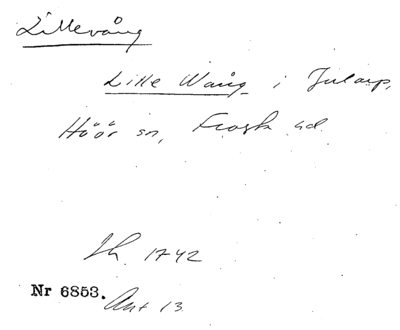 Lillevång
Lille Wång i Jularp,
Höör sn, Frosta hd
Jb 1742
Nr 6853. Ant 13